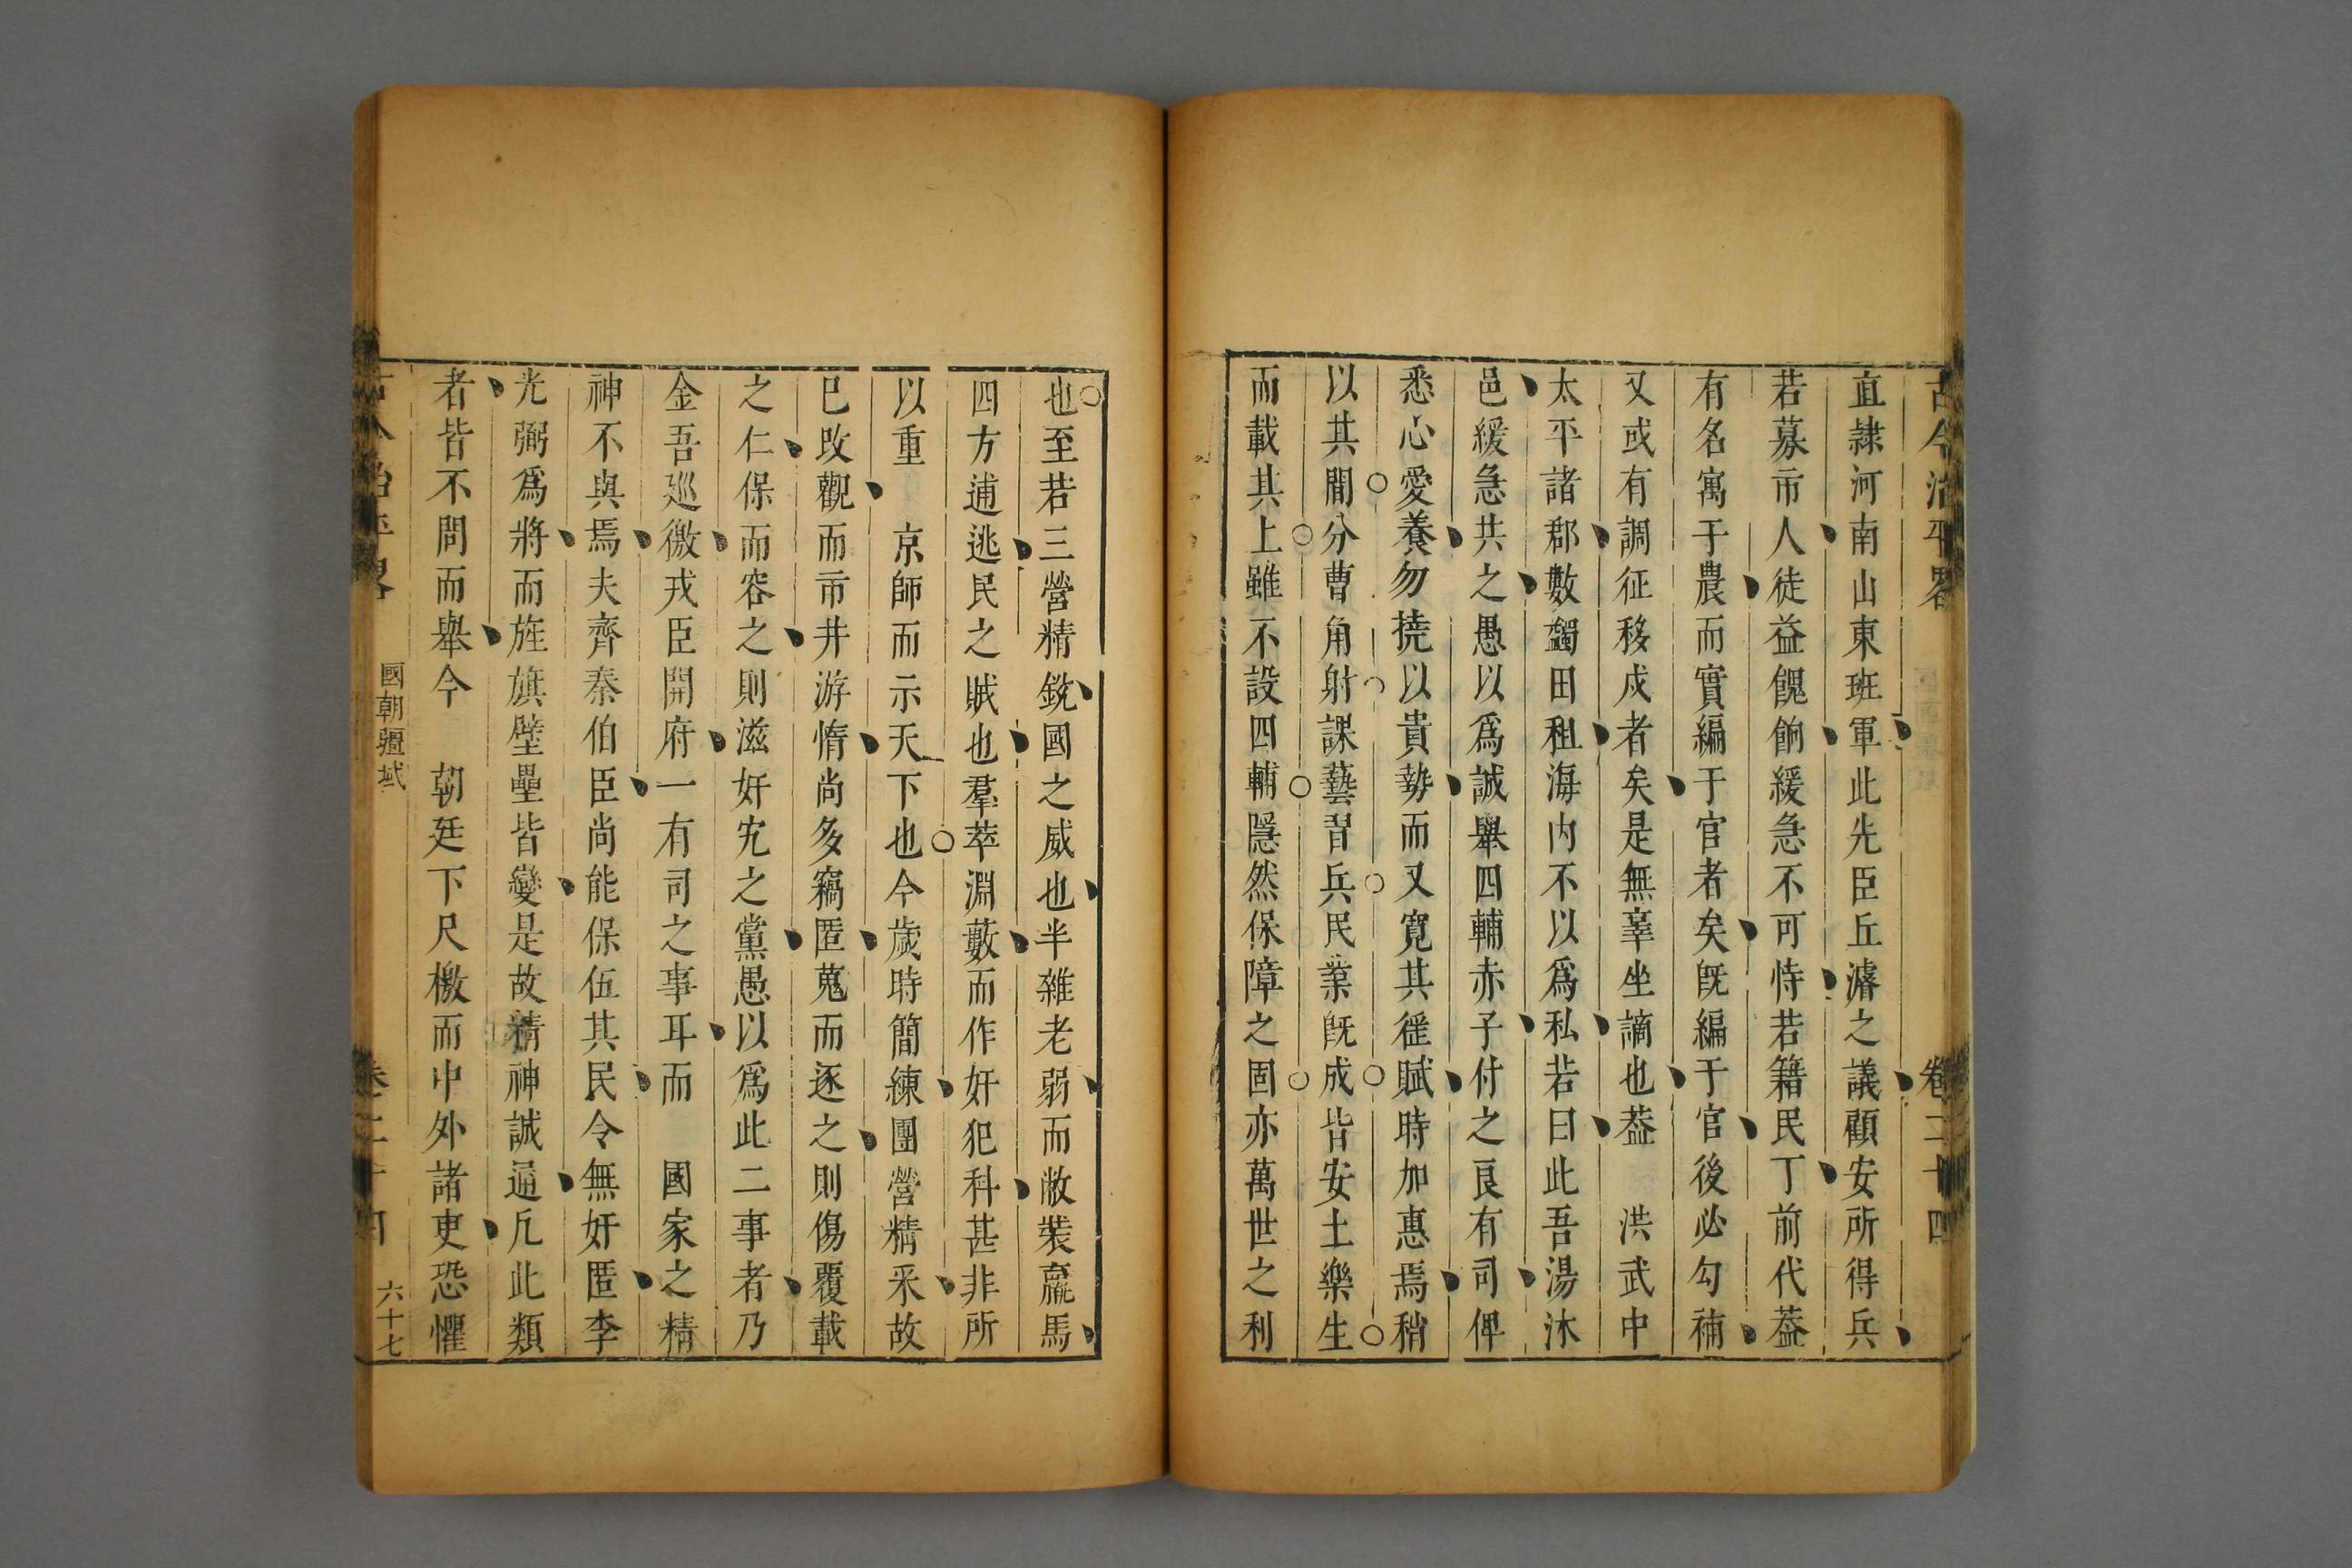 古今治平畧 卷二十四
直隷河南山東班軍此先臣丘濬之議顧安所得兵
若募市人徒益餽餉緩急不可恃若籍民丁前代葢
有名寓于農而實編于官者矣旣編于官後必勾補
又或有調征移戍者矣是無辜坐謫也葢 洪武中
太平諸郡數蠲田租海內不以為私若曰此吾湯沐
邑緩急共之愚以爲誠舉四輔赤子付之良有司俾
悉心愛養勿撓以貴勢而又寬其徭賦時加惠焉稍
以其閒分曹角射課藝習兵民業旣成皆安土樂生
而載其上雖不設四輔隱然保障之固亦萬世之利
也至若三營精銳國之威也半雜老弱而敝裝羸馬
四方逋逃民之賊也羣萃淵藪而作奸犯科甚非所
以重 京師而示天下也今歲時簡練團營精采故
已改觀而市井游惰尚多竊匿蒐而逐之則傷覆載
之仁保而容之則滋奸宄之黨愚以爲此二事者乃
金吾廵徼戎臣開府一有司之事耳而 國家之精
神不與焉夫齊秦伯臣尚能保伍其民令無奸匿李
光弼爲將而旌旗壁壘皆變是故精神誠通凡此類
者皆不問而舉今 朝廷下尺檄而中外諸吏恐懼
古今治平畧 國朝疆域 卷二十四 六十七